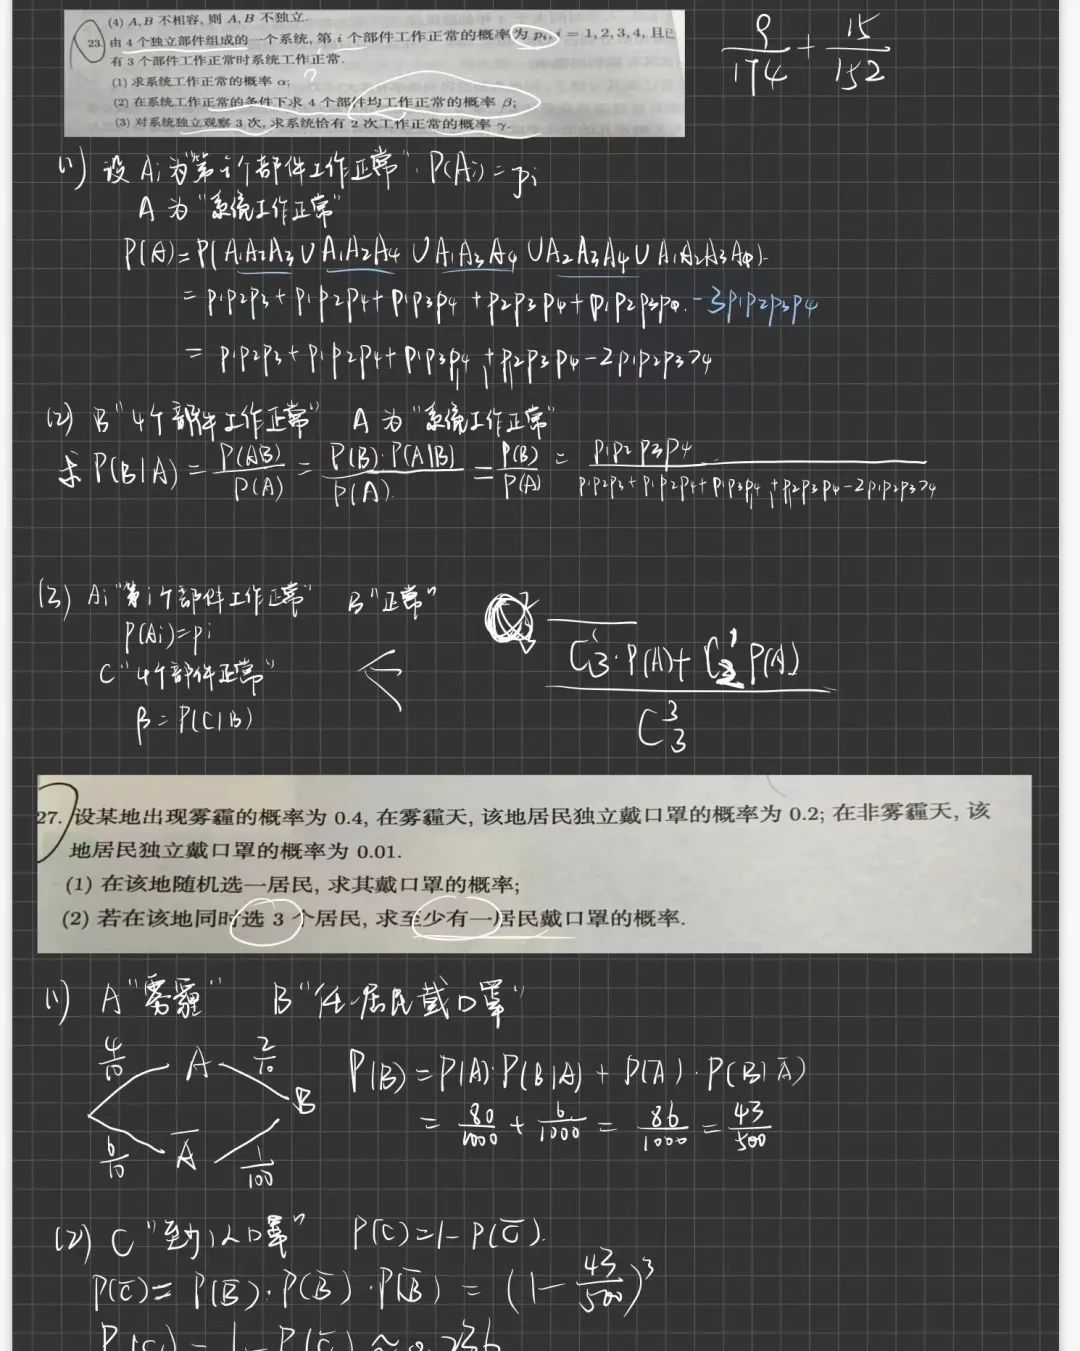 (4) A, B 不相容, 则 A, B 不独立.
23. 由 4 个独立部件组成的一个系统, 第 i 个部件工作正常的概率为 pᵢ, i = 1, 2, 3, 4, 且已
有 3 个部件工作正常时系统工作正常.
(1) 求系统工作正常的概率 α;
(2) 在系统工作正常的条件下求 4 个部件均工作正常的概率 β;
(3) 对系统独立观察 3 次, 求系统恰有 2 次工作正常的概率 γ.
9/174 + 15/152
(1) 设 Ai 为"第i个部件工作正常". P(Ai)=pi
A 为 "系统工作正常"
P(A)=P(A1A2A3 ∪ A1A2A4 ∪ A1A3A4 ∪ A2A3A4 ∪ A1A2A3A4)
= p1p2p3 + p1p2p4 + p1p3p4 + p2p3p4 + p1p2p3p4 - 3p1p2p3p4
= p1p2p3 + p1p2p4 + p1p3p4 + p2p3p4 - 2p1p2p3p4
(2) B "4个部件工作正常" A 为 "系统工作正常"
求 P(B|A) = P(AB)/P(A) = P(B)·P(A|B)/P(A) = P(B)/P(A) = p1p2p3p4/(p1p2p3 + p1p2p4 + p1p3p4 + p2p3p4 - 2p1p2p3p4)
(3) Ai "第i个部件工作正常" B "正常"
P(Ai)=pi
C "4个部件正常"
β = P(C|B)
C₃¹·P(A) + C₂¹ P(A)
C₃³
27. 设某地出现雾霾的概率为 0.4, 在雾霾天, 该地居民独立戴口罩的概率为 0.2; 在非雾霾天, 该
地居民独立戴口罩的概率为 0.01.
(1) 在该地随机选一居民, 求其戴口罩的概率;
(2) 若在该地同时选 3 个居民, 求至少有一居民戴口罩的概率.
(1) A "雾霾" B "任一居民戴口罩"
4/10 A 2/10
B
6/10 A̅ 1/100
P(B) = P(A)·P(B|A) + P(A̅)·P(B|A̅)
= 80/1000 + 6/1000 = 86/1000 = 43/500
(2) C "至少1人口罩" P(C)=1-P(C̅).
P(C̅) = P(B̅)·P(B̅)·P(B̅) = (1-43/500)³
P(C) = 1-P(C̅) ≈ 0.236